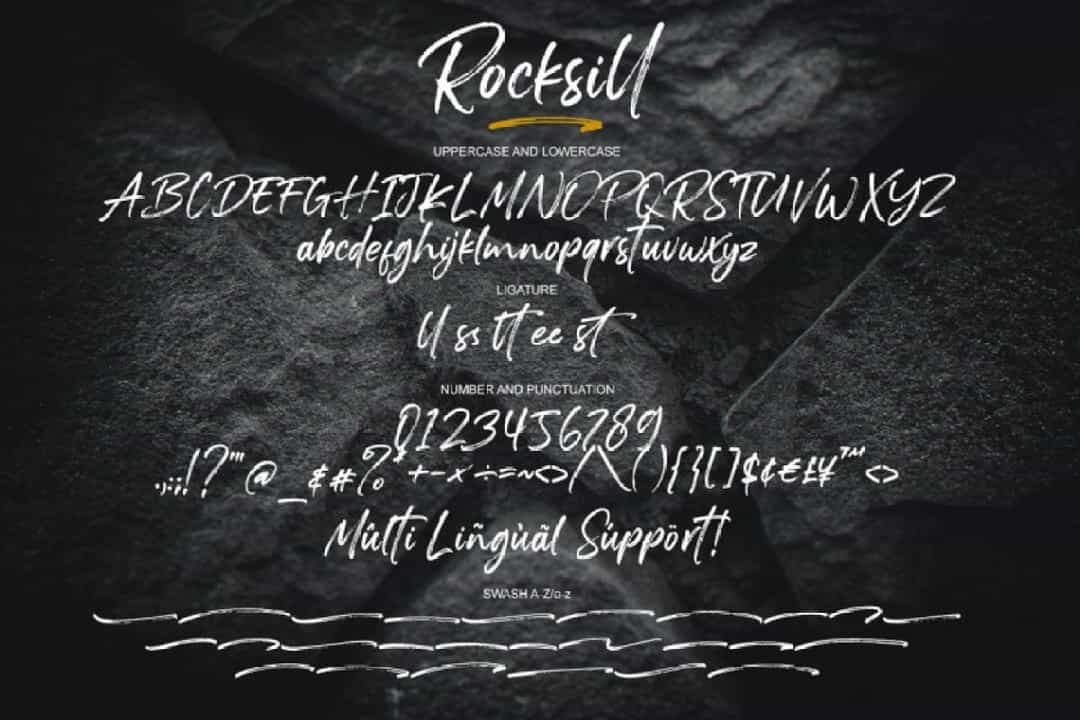 Rocksill
UPPERCASE AND LOWERCASE
ABCDEFGHIJKLMNOPQRSTUVWXYZ
abcdefghijklmnopqrstuvwxyz
LIGATURE
ll ss tt ee st
NUMBER AND PUNCTUATION
0123456789
.,:;!?'"@_&#%*+-×÷=~<>/\(){}[]$¢€£¥™<>
Mûlti Liñgùãl Súppört!
SWASH A-Z/a-z